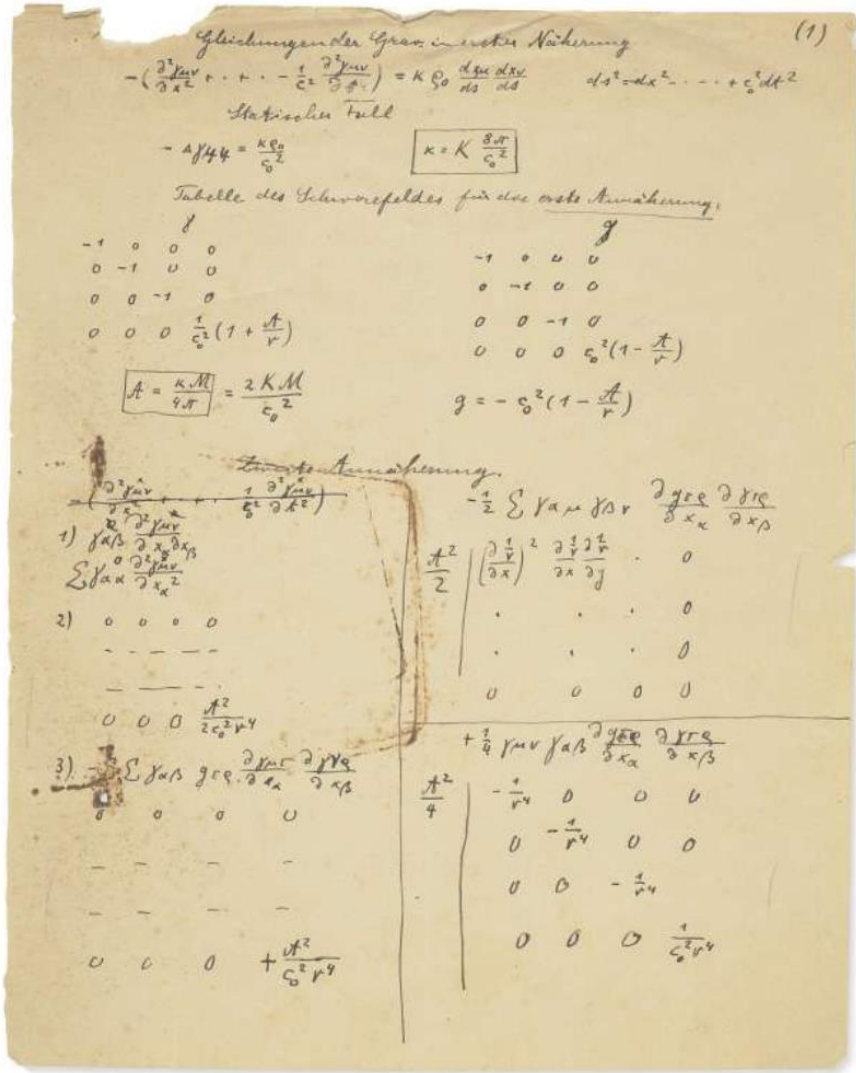 (1)
Gleichungen der Grav. in erster Näherung
-(∂²γμν/∂x² + · + · - 1/c² ∂²γμν/∂t²) = κ ρ₀ dxμ/ds dxν/ds    ds² = dx² - · · · + c₀² dt²
Statischer Fall
- Δγ44 = κρ₀/c₀²    κ = K 8π/c₀²
Tabelle des Schwerefeldes für die erste Annäherung.
γ    g
-1 0 0 0    -1 0 0 0
0 -1 0 0    0 -1 0 0
0 0 -1 0    0 0 -1 0
0 0 0 1/c₀² (1 + A/r)    0 0 0 c₀² (1 - A/r)
A = κM/4π = 2KM/c₀²    g = - c₀² (1 - A/r)
Zweite Annäherung.
-(∂²γμν/∂x² + · + · 1/c₀² ∂²γμν/∂t²)
1) γαβ ∂²γμν/∂xα∂xβ
Σ γαα ∂²γμν/∂xα²
2) 0 0 0 0
- - - -
- - - -
0 0 0 A²/2c₀²r⁴
3) Σ γαβ gτρ ∂γμτ/∂xα ∂γνρ/∂xβ
0 0 0 0
- - - -
- - - -
0 0 0 + A²/c₀²r⁴
-1/2 Σ γαμ γβν ∂gτρ/∂xα ∂γτρ/∂xβ
A²/2 | (∂1/r/∂x)² ∂1/r/∂x ∂1/r/∂y · 0
· · · 0
· · · 0
0 0 0 0
+ 1/4 γμν γαβ ∂gτρ/∂xα ∂γτρ/∂xβ
A²/4 | -1/r⁴ 0 0 0
0 -1/r⁴ 0 0
0 0 -1/r⁴
0 0 0 1/c₀²r⁴